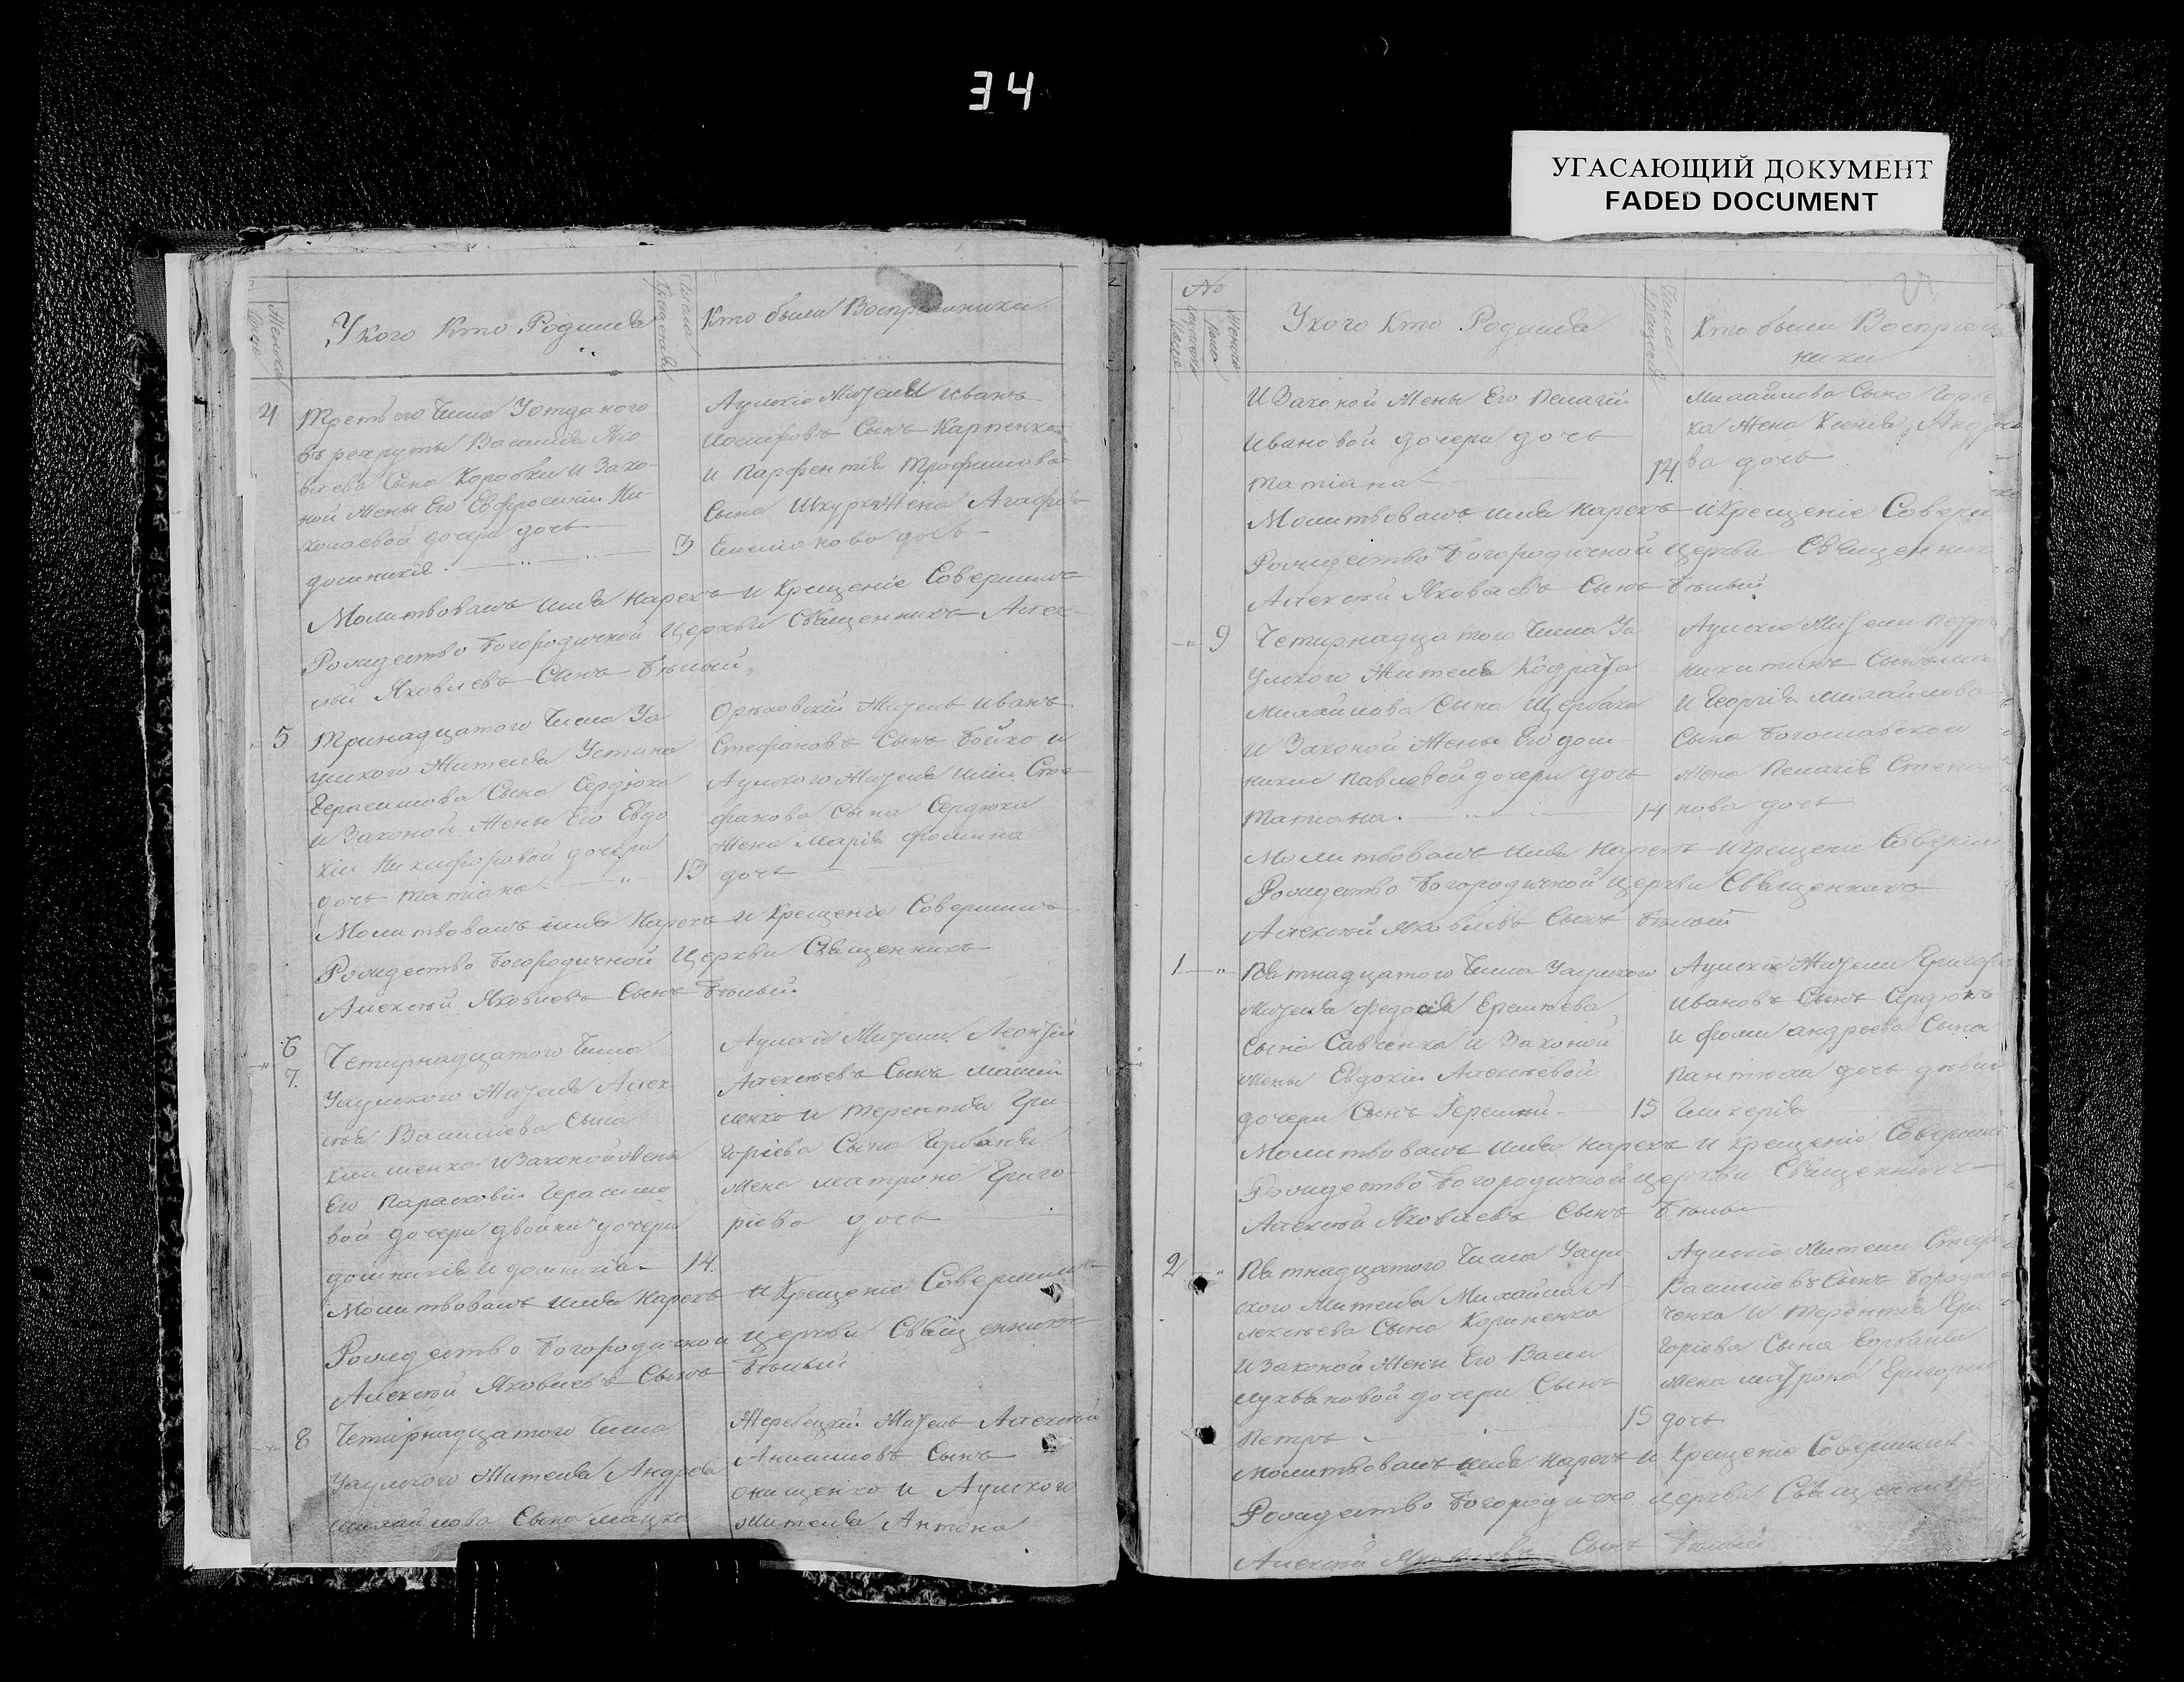 34
УГАСАЮЩИЙ ДОКУМЕНТ
FADED DOCUMENT
Женска
Укого Кто Родился
Числа
Крещенія
Кто были Воспріемники
4
Третьего Числа Уотданого
въ рекруты Василія Яко
влева Сына Коробки и Зако
ной Жены Его Евфросиніи Ни
колаевой дочери дочь
домникія
3
Аулскіе Жители Иванъ
Иосифовъ Сынъ Карпенко
и Парфентія Трофимова
Сына Шкурки Жена Агафія
Емелянова дочь
Молитвовалъ имя Нарекъ и Крещеніе Совершилъ
Рождество Богородичной Церкви Священникъ Алек
сей Яковлевъ Сынъ Белый
5
Тринадцатого Числа Уа
улского Жителя Устина
Герасимова Сына Сердюка
и Законой Жены Его Евдо
кіи Никифоровой дочери
дочь Татіана
13
Ореховскій Житель Иванъ
Стефановъ Сынъ Бойко и
Аулского Жителя Иліи Сте
фанова Сына Сердюка
Жена Марія Фомина
дочь
Молитвовалъ имя Нарекъ и Крещеніе Совершилъ
Рождество Богородичной Церкви Священникъ
Алексей Яковлевъ Сынъ Белый
6
7.
Четирнадцатого Числа
Уаулского Жителя Алек
сея Василіева Сына
Климленко и Законой Жены
Его Парасковіи Герасимо
вой дочери двойни дочери
домникія и домникія
14.
Аулскіе Жители Леонтій
Алексеевъ Сынъ
ленко и Терентія Гри
горіева Сына Горбаня
Жена Матрона Григо
ріева дочь
Молитвовалъ имя Нарекъ и Крещеніе Совершилъ
Рождество Богородичной Церкви Священникъ
Алексей Яковлевъ Сынъ Белый
8
Четирнадцатого Числа
Уаулского Жителя Андрея
Михайлова Сына Мацка
Жеребецкій Житель Алексей
Анисимовъ Сынъ
Онищенко и Аулского
Жителя Антона
№
Мужска
Пола
Женска
Пола
Укого Кто Родился
Числа
Крещенія
Кто были Воспріем
ники
И Законой Жены Его Пелагіи
Ивановой дочери дочь
Татіана
14.
Михайлова Сына
ка Жена Ксенія Андрее
ва дочь
Молитвовалъ имя Нарекъ и Крещеніе Соверш
Рождество Богородичной Церкви Священник
Алексей Яковлевъ Сынъ Белый
9
Четирнадцатого Числа Уа
улского Жителя Кодрата
Михайлова Сына Щербака
и Законой Жены Его дом
никіи Павловой дочери дочь
Татіана
14
Аулскіе Жители Петръ
Никитинъ Сынъ
И Георгія Михайлова
Сына Богославского
Жена Пелагія Степа
нова дочь
Молитвовалъ имя Нарекъ и Крещеніе Соверши
Рождество Богородичной Церкви Священникъ
Алексей Яковлевъ Сынъ Белый
1
Пятнадцатого Числа Уаулского
Жителя Федосія Еремеева
Сына Савченка и Законой
Жены Евдокіи Алексеевой
дочери Сынъ Геремій
15
Аулскіе Жители Григор
Ивановъ Сынъ Сердюкъ
и Фоми Андреева Сына
Пантюха дочь девиц
Гликерія
Молитвовалъ имя Нарекъ и Крещеніе Соверши
Рождество Богородичной Церкви Священникъ
Алексей Яковлевъ Сынъ Белы
2
Пятнадцатого Числа Уаул
ского Жителя Михайла А
лексеева Сына Кориненка
и Законой Жены Его Васи
Лукьяновой дочери Сынъ
Петръ
15
Аулскіе Жители Стефа
Василіевъ Сынъ Бородав
ченко и Терентія Гри
горіева Сына Горбаня
Жена Матрона Григорі
дочь
Молитвовалъ имя Нарекъ и Крещеніе Совершил
Рождество Богородично Церкви Священникъ
Алексей Яковлевъ Сынъ Белый